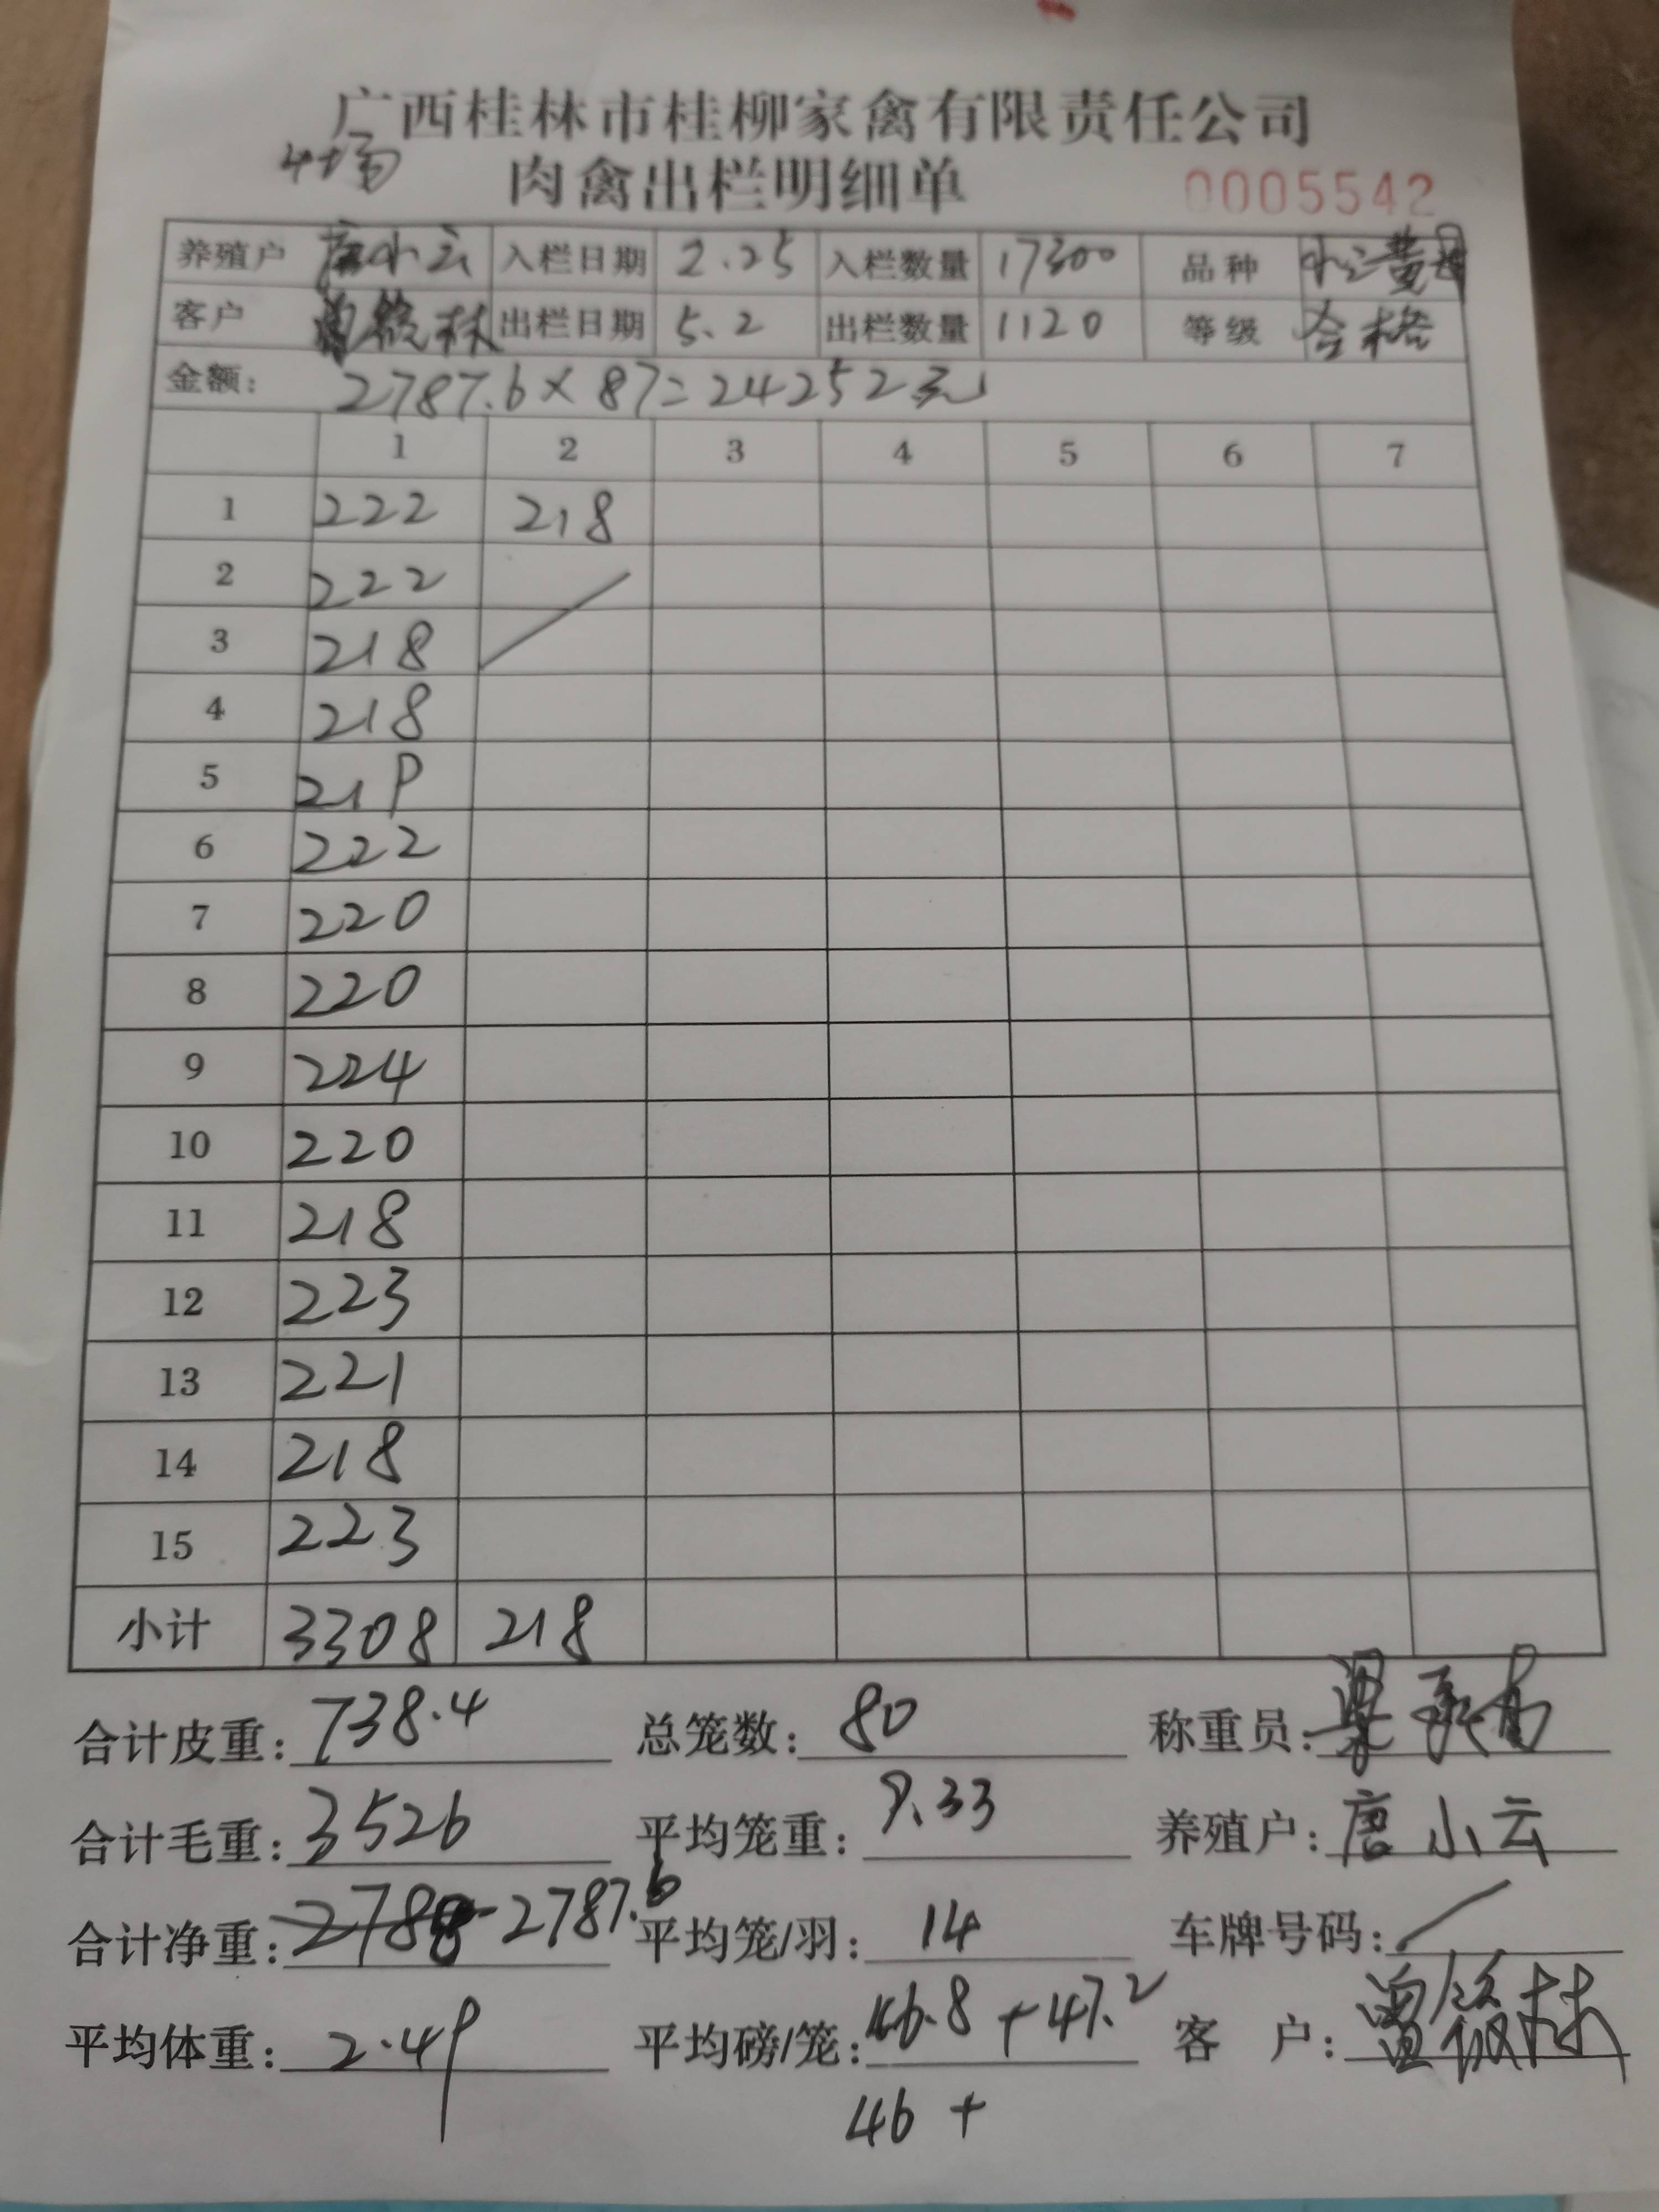 广西桂林市桂柳家禽有限责任公司
4场 肉禽出栏明细单 0005542
养殖户 唐小云 入栏日期 2.25 入栏数量 17300 品种 小三黄
客户 林 出栏日期 5.2 出栏数量 1120 等级 合格
金额: 2787.6×87=24252元
1 2 3 4 5 6 7
1 222 218
2 222
3 218
4 218
5 219
6 222
7 220
8 220
9 224
10 220
11 218
12 223
13 221
14 218
15 223
小计 3308 218
合计皮重: 738.4 总笼数: 80 称重员: 梁
合计毛重: 3526 平均笼重: 9.33 养殖户: 唐小云
合计净重: 2788 2787.6 平均笼/羽: 14 车牌号码:
平均体重: 2.49 平均磅/笼: 46.8+47.2 客 户: 林
46+